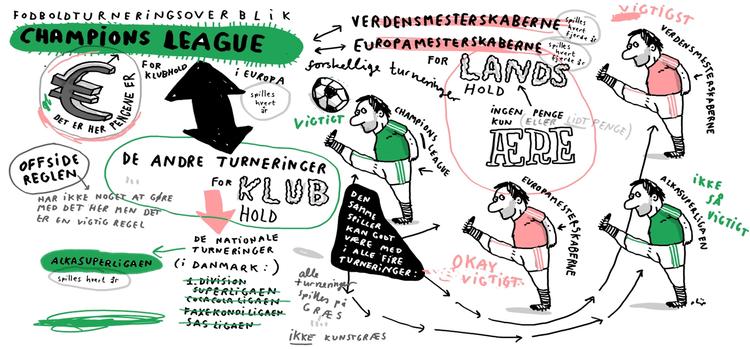 FODBOLDTURNERINGSOVERBLIK
CHAMPIONS LEAGUE
FOR
KLUBHOLD
i EUROPA
spilles
hvert
år
€
DET ER HER PENGENE ER
VERDENSMESTERSKABERNE
spilles
hvert
fjerde år
EUROPAMESTERSKABERNE
spilles
hvert
fjerde år
forskellige turneringer
FOR
LANDS
HOLD
INGEN PENGE
KUN (ELLER LIDT PENGE)
ÆRE
VIGTIGST
VERDENSMESTERSKABERNE
VIGTIGT
CHAMPIONS LEAGUE
DE ANDRE TURNERINGER
FOR KLUB
HOLD
OFFSIDE
REGLEN
HAR IKKE NOGET AT GØRE
MED DET HER MEN DET
ER EN VIGTIG REGEL
DE NATIONALE
TURNERINGER
(i DANMARK:)
ALKASUPERLIGAEN
spilles hvert år
1. DIVISION
SUPERLIGAEN
COCACOLA LIGAEN
FAXE KONDI LIGAEN
SAS LIGAEN
alle
turneringer
spilles på
GRÆS
IKKE KUNSTGRÆS
DEN
SAMME
SPILLER
KAN GODT
VÆRE MED
I ALLE FIRE
TURNERINGER:
EUROPAMESTERSKABERNE
OKAY
VIGTIGT
ALKASUPERLIGAEN
IKKE
SÅ
VIGTIGT